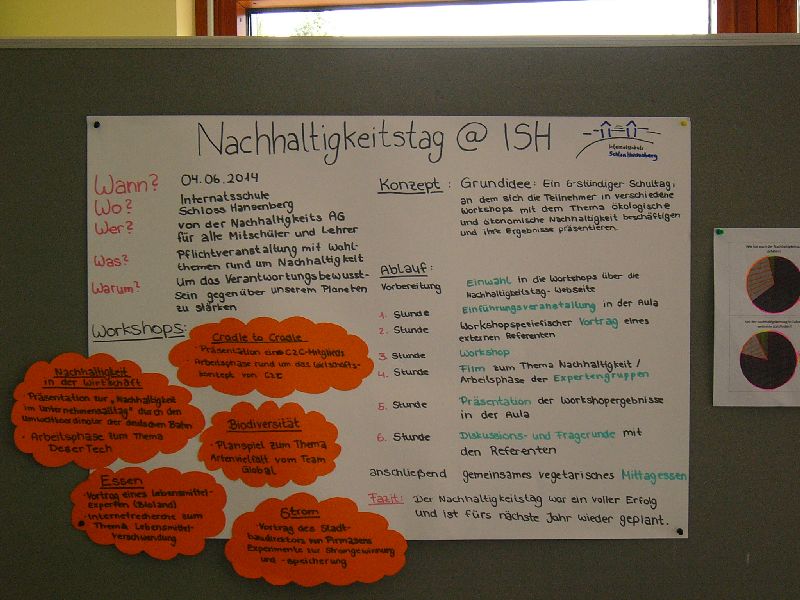 Nachhaltigkeitstag @ ISH
Internatsschule
Schloss Hansenberg
Wann? 04.06.2014
Wo? Internatsschule
Schloss Hansenberg
Wer? von der Nachhaltigkeits AG
für alle Mitschüler und Lehrer
Was? Pflichtveranstaltung mit Wahl-
themen rund um Nachhaltigkeit
Warum? Um das Verantwortungsbewusst-
sein gegenüber unserem Planeten
zu stärken
Workshops:
Cradle to Cradle
· Präsentation eines C2C-Mitglieds
· Arbeitsphase rund um das
konzept von C2C
Nachhaltigkeit
in der Wirtschaft
· Präsentation zur "Nachhaltigkeit
im Unternehmensalltag" durch den
Umweltkoordinator der deutschen Bahn
· Arbeitsphase zum Thema
DeserTech
Biodiversität
· Planspiel zum Thema
Artenvielfalt vom Team
Global
Essen
· Vortrag eines Lebensmittel-
experten (Bioland)
· Internetrecherche zum
Thema Lebensmittel-
verschwendung
Strom
· Vortrag des Stadt-
baudirektors von Pirmasens
Experimente zur Stromgewinnung
und -speicherung
Konzept: Grundidee: Ein 6-stündiger Schultag,
an dem sich die Teilnehmer in verschiedene
Workshops mit dem Thema ökologische
und ökonomische Nachhaltigkeit beschäftigen
und ihre Ergebnisse präsentieren.
Ablauf:
Vorbereitung Einwahl in die Workshops über die
Nachhaltigkeitstag-Webseite
1. Stunde Einführungsveranstaltung in der Aula
2. Stunde Workshopspezifischer Vortrag eines
externen Referenten
3. Stunde Workshop
4. Stunde Film zum Thema Nachhaltigkeit /
Arbeitsphase der Expertengruppen
5. Stunde Präsentation der Workshopergebnisse
in der Aula
6. Stunde Diskussions- und Fragerunde mit
den Referenten
anschließend gemeinsames vegetarisches Mittagessen
Fazit: Der Nachhaltigkeitstag war ein voller Erfolg
und ist fürs nächste Jahr wieder geplant.